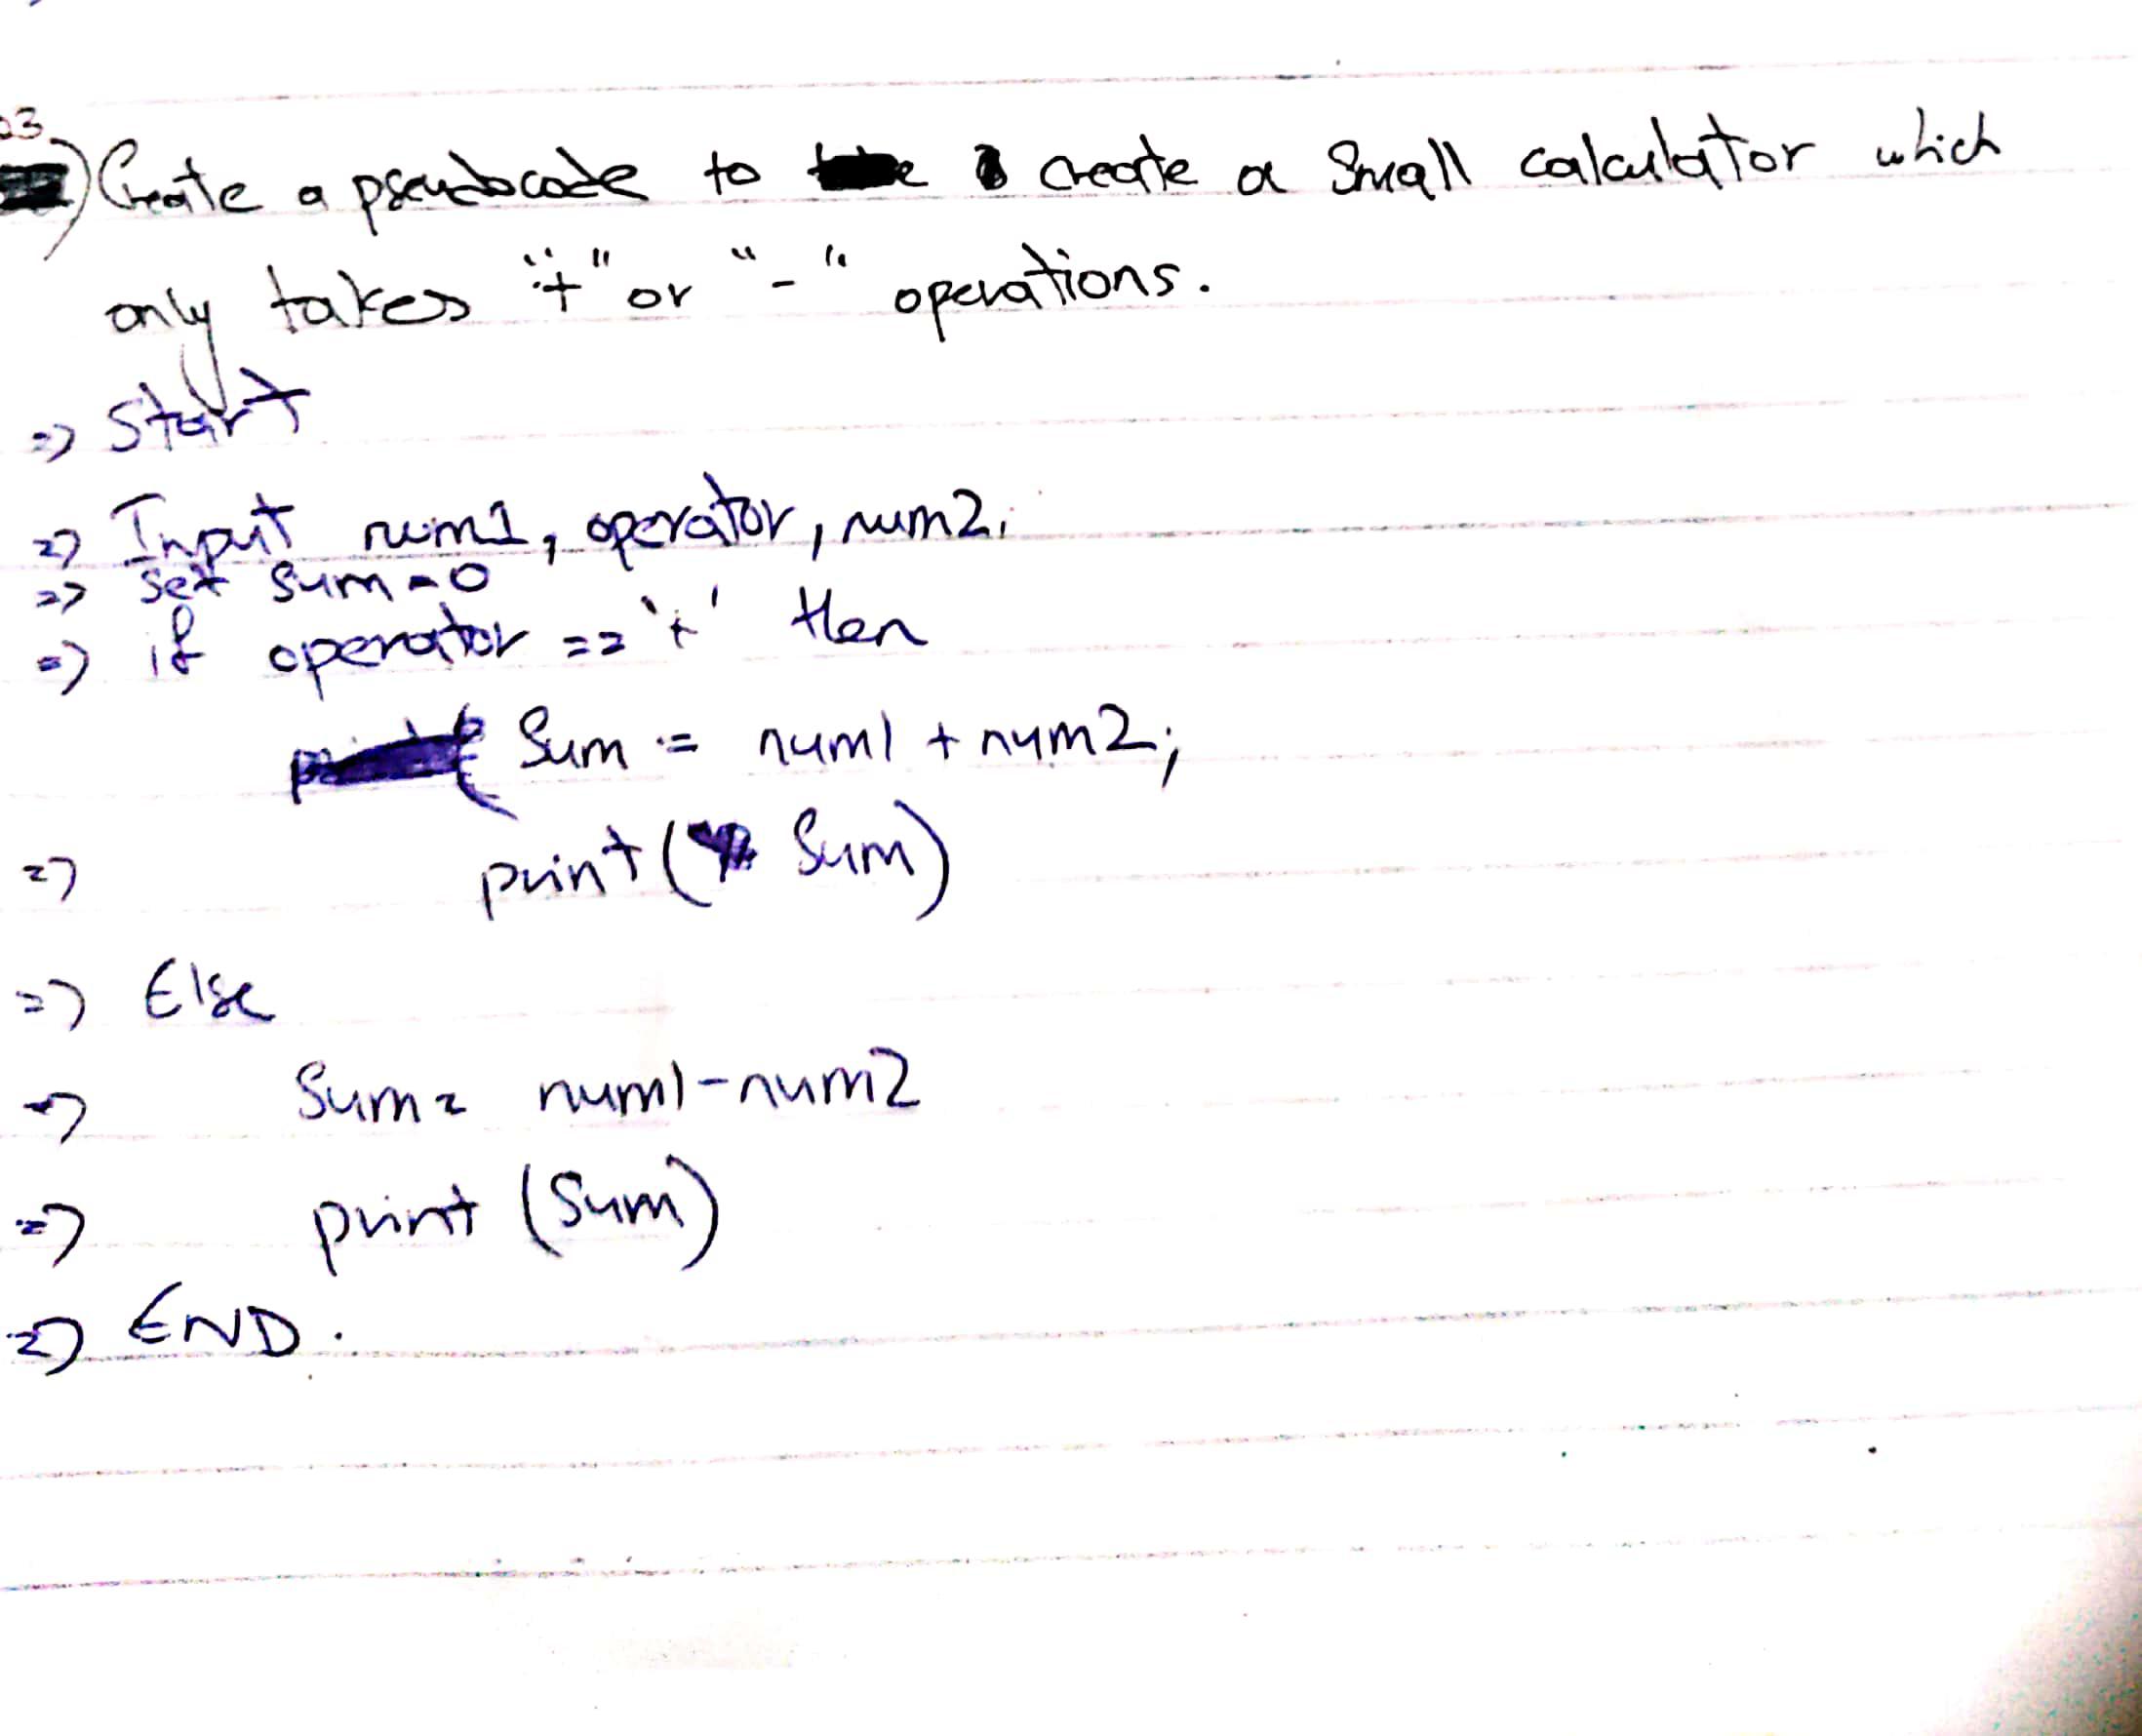 03
) Create a pseudocode to create a Small calculator which
only takes "+" or "-" operations.
=> Start
=> Input num1, operator, num2;
=> Set Sum = 0
=> if operator == '+' then
Sum = num1 + num2;
=> print( Sum)
=> Else
=> Sum = num1-num2
=> print (Sum)
=> END.